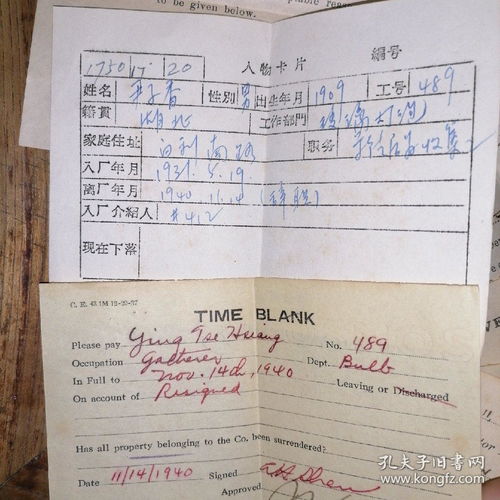 to be given below.
1750 17 20
人物卡片
編号
姓名 性别 男 出生年月 1909 工号 489
籍貫 湖北 工作部門
家庭住址 白利南路 职务
入厂年月 1931. 5. 19
离厂年月 1940. 11. 14 (辞职)
入厂介紹人 #412
现在下落
C. E. 43 1M 12-20-37
TIME BLANK
Please pay Ying Tse Hsiang No. 489
Occupation Gatherer Dept. Bulb
In Full to Nov. 14th, 1940 Leaving or Discharged
On account of Resigned
Has all property belonging to the Co. been surrendered?
Date 11/14/1940 Signed
Approved
孔夫子旧书网
kongfz.com